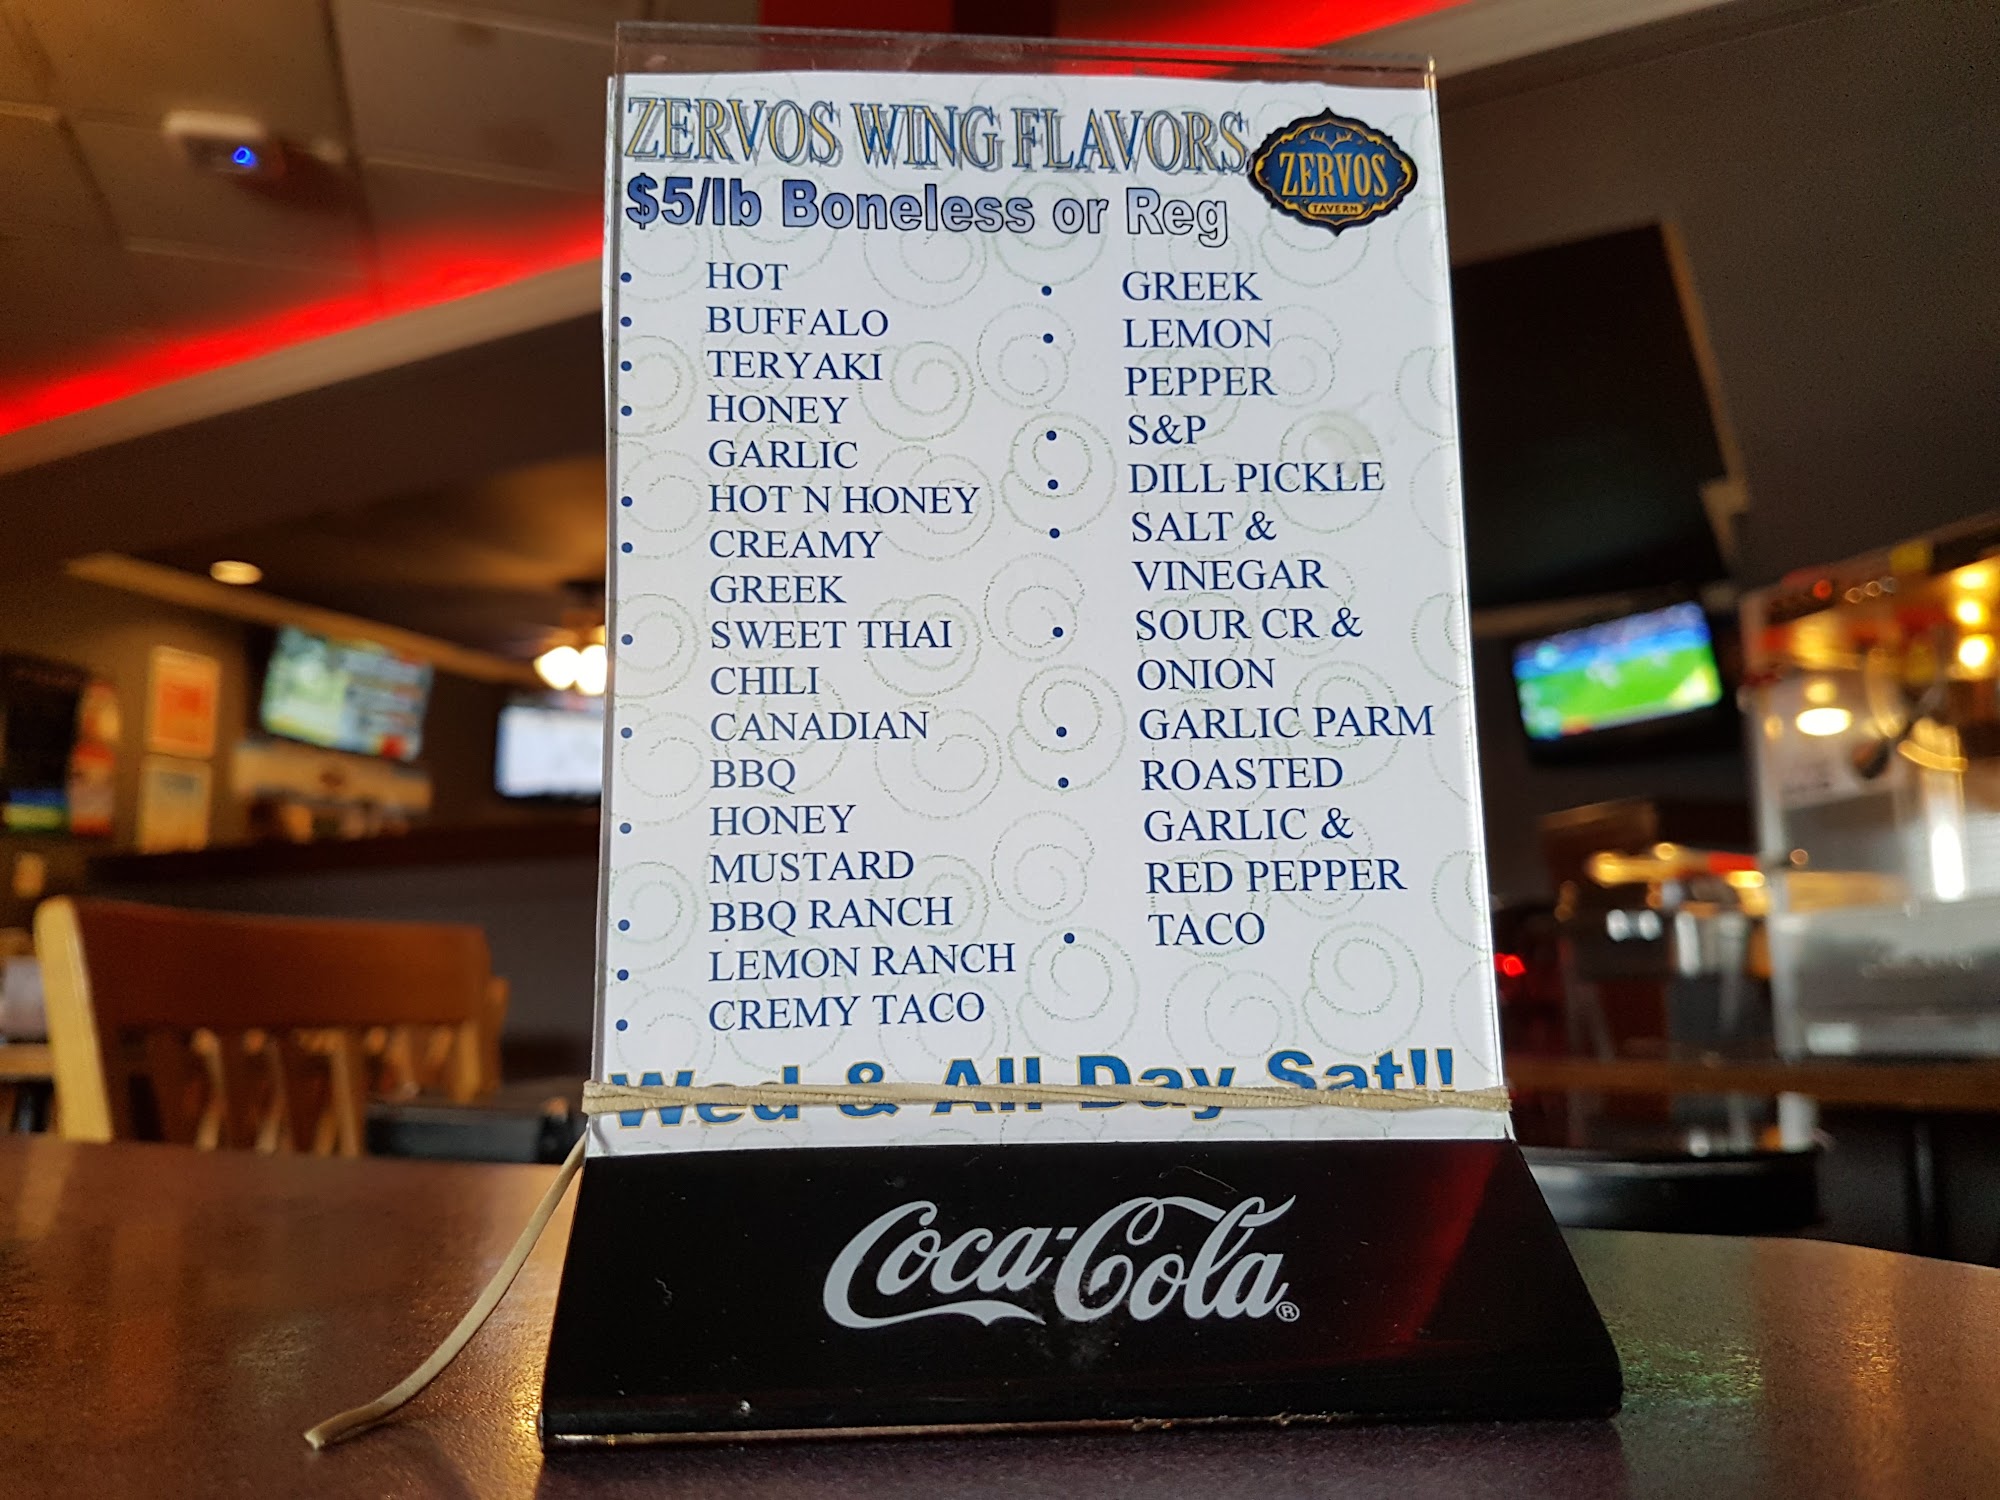 ZERVOS WING FLAVORS
ZERVOS
TAVERN
$5/lb Boneless or Reg
• HOT
• BUFFALO
• TERYAKI
• HONEY
GARLIC
• HOT N HONEY
• CREAMY
GREEK
• SWEET THAI
CHILI
• CANADIAN
BBQ
• HONEY
MUSTARD
• BBQ RANCH
• LEMON RANCH
• CREMY TACO
• GREEK
• LEMON
PEPPER
• S&P
• DILL PICKLE
• SALT &
VINEGAR
• SOUR CR &
ONION
• GARLIC PARM
• ROASTED
GARLIC &
RED PEPPER
• TACO
Wed & All Day Sat!!
Coca-Cola®